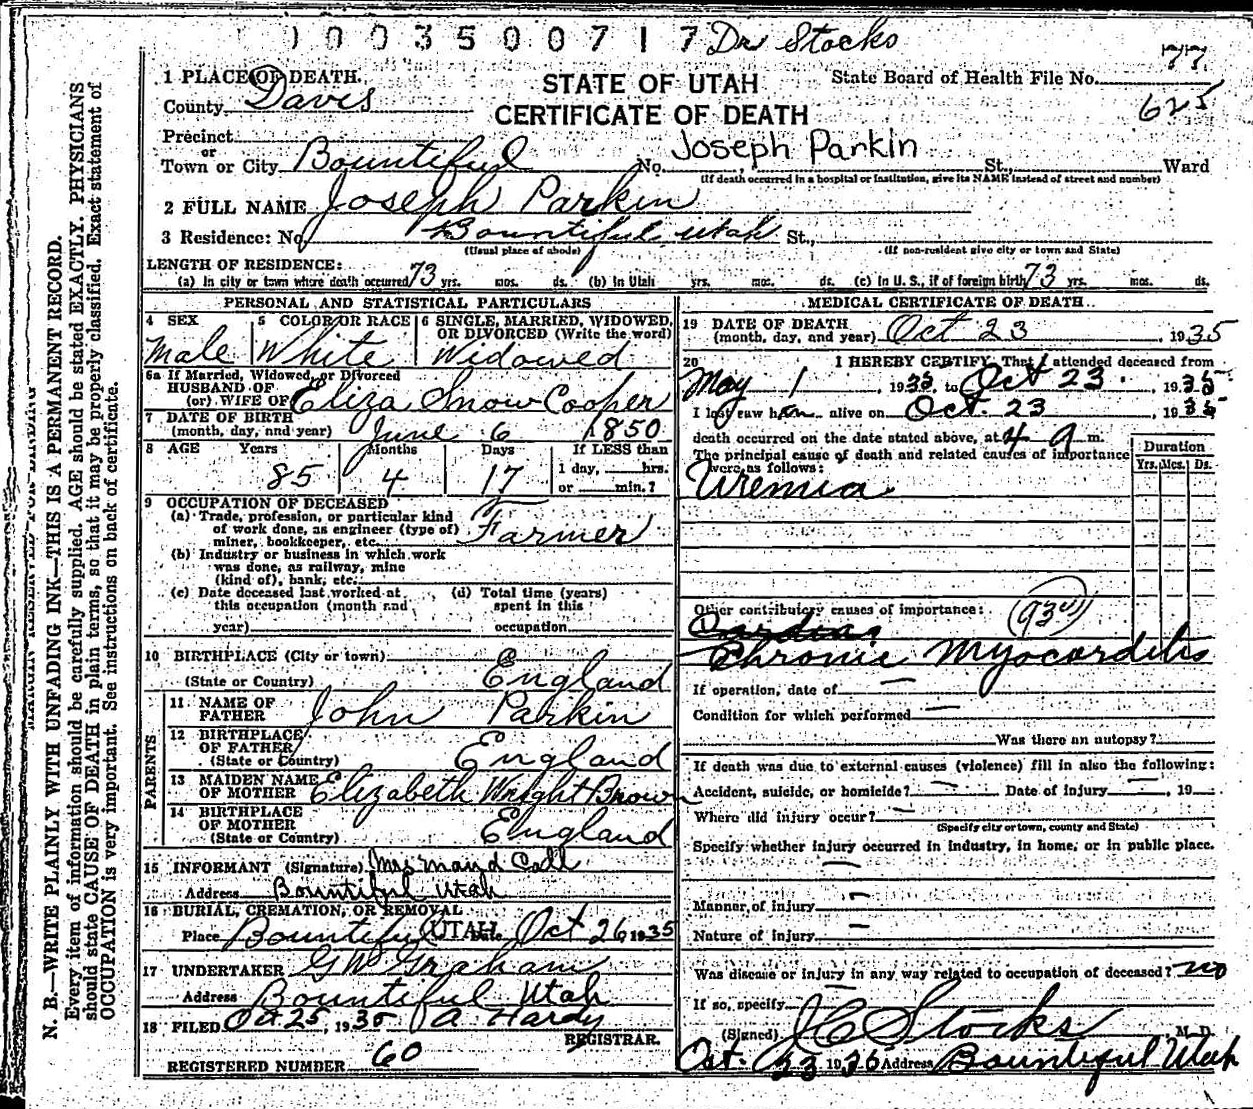 1003500717 Dr Stocks
77
1 PLACE OF DEATH. STATE OF UTAH State Board of Health File No.
County Davis CERTIFICATE OF DEATH 625
Precinct
or
Town or City Bountiful No. Joseph Parkin St., Ward
(If death occurred in a hospital or institution, give its NAME instead of street and number)
2 FULL NAME Joseph Parkin
3 Residence: No. Bountiful, Utah St.,
(Usual place of abode) (If non-resident give city or town and State)
LENGTH OF RESIDENCE:
(a) In city or town where death occurred 73 yrs. mos. ds. (b) in Utah yrs. mos. ds. (c) in U. S., if of foreign birth 73 yrs. mos. ds.
PERSONAL AND STATISTICAL PARTICULARS
4 SEX 5 COLOR OR RACE 6 SINGLE, MARRIED, WIDOWED,
OR DIVORCED (Write the word)
Male White Widowed
6a If Married, Widowed, or Divorced
HUSBAND OF
(or) WIFE OF Eliza Snow Cooper
7 DATE OF BIRTH
(month, day, and year) June 6 1850
8 AGE Years Months Days If LESS than
1 day, hrs.
85 4 17 or min.?
9 OCCUPATION OF DECEASED
(a) Trade, profession, or particular kind
of work done, as engineer (type of) Farmer
miner, bookkeeper, etc.
(b) Industry or business in which work
was done, as railway, mine
(kind of), bank, etc.
(c) Date deceased last worked at (d) Total time (years)
this occupation (month and spent in this
year) occupation
10 BIRTHPLACE (City or town)
(State or Country) England
PARENTS
11 NAME OF
FATHER John Parkin
12 BIRTHPLACE
OF FATHER
(State or Country) England
13 MAIDEN NAME
OF MOTHER Elizabeth Wright Brown
14 BIRTHPLACE
OF MOTHER
(State or Country) England
15 INFORMANT (Signature) Mrs Maud Call
Address Bountiful Utah
16 BURIAL, CREMATION, OR REMOVAL
Place Bountiful UTAH Date Oct 26, 1935
17 UNDERTAKER G W Graham
Address Bountiful Utah
18 FILED Oct 25, 1935 A Hardy
REGISTRAR.
REGISTERED NUMBER 60
MEDICAL CERTIFICATE OF DEATH
19 DATE OF DEATH
(month, day, and year) Oct 23, 1935
20 I HEREBY CERTIFY, That I attended deceased from
May 1, 1935, to Oct 23. 1935
I last saw him alive on Oct. 23, 1935
death occurred on the date stated above, at 4 a m.
The principal cause of death and related causes of importance
were as follows:
Duration
Yrs. Mos. Ds.
Uremia
Other contributory causes of importance:
Chronic Myocarditis
If operation, date of
Condition for which performed
Was there an autopsy?
If death was due to external causes (violence) fill in also the following:
Accident, suicide, or homicide? Date of injury , 19
Where did injury occur?
(Specify city or town, county and State)
Specify whether injury occurred in industry, in home, or in public place.
Manner of injury
Nature of injury
Was disease or injury in any way related to occupation of deceased? no
If so, specify
(Signed) J C Stocks, M. D.
Oct. 23 1936 Address Bountiful Utah
N. B.—WRITE PLAINLY WITH UNFADING INK—THIS IS A PERMANENT RECORD.
Every item of information should be carefully supplied. AGE should be stated EXACTLY. PHYSICIANS
should state CAUSE OF DEATH in plain terms, so that it may be properly classified. Exact statement of
OCCUPATION is very important. See instructions on back of certificate.